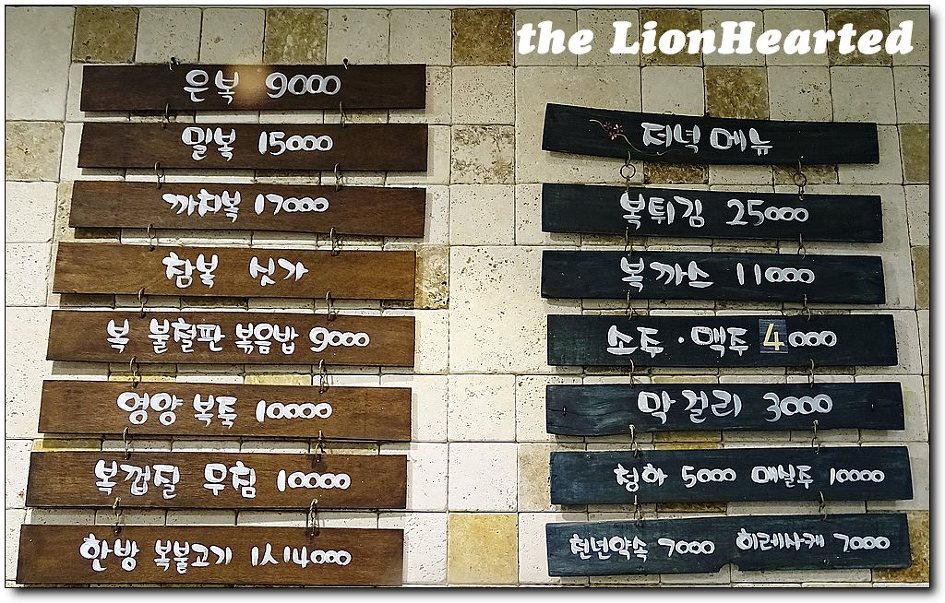 the LionHearted
은복 9000
밀복 15000
까치복 17000
참복 싯가
복 불철판 볶음밥 9000
영양 복죽 10000
복껍질 무침 10000
한방 복불고기 1人 14000
저녁메뉴
복튀김 25000
복까스 11000
소주·맥주 4000
막걸리 3000
청하 5000 매실주 10000
천년약속 7000 히레사케 7000